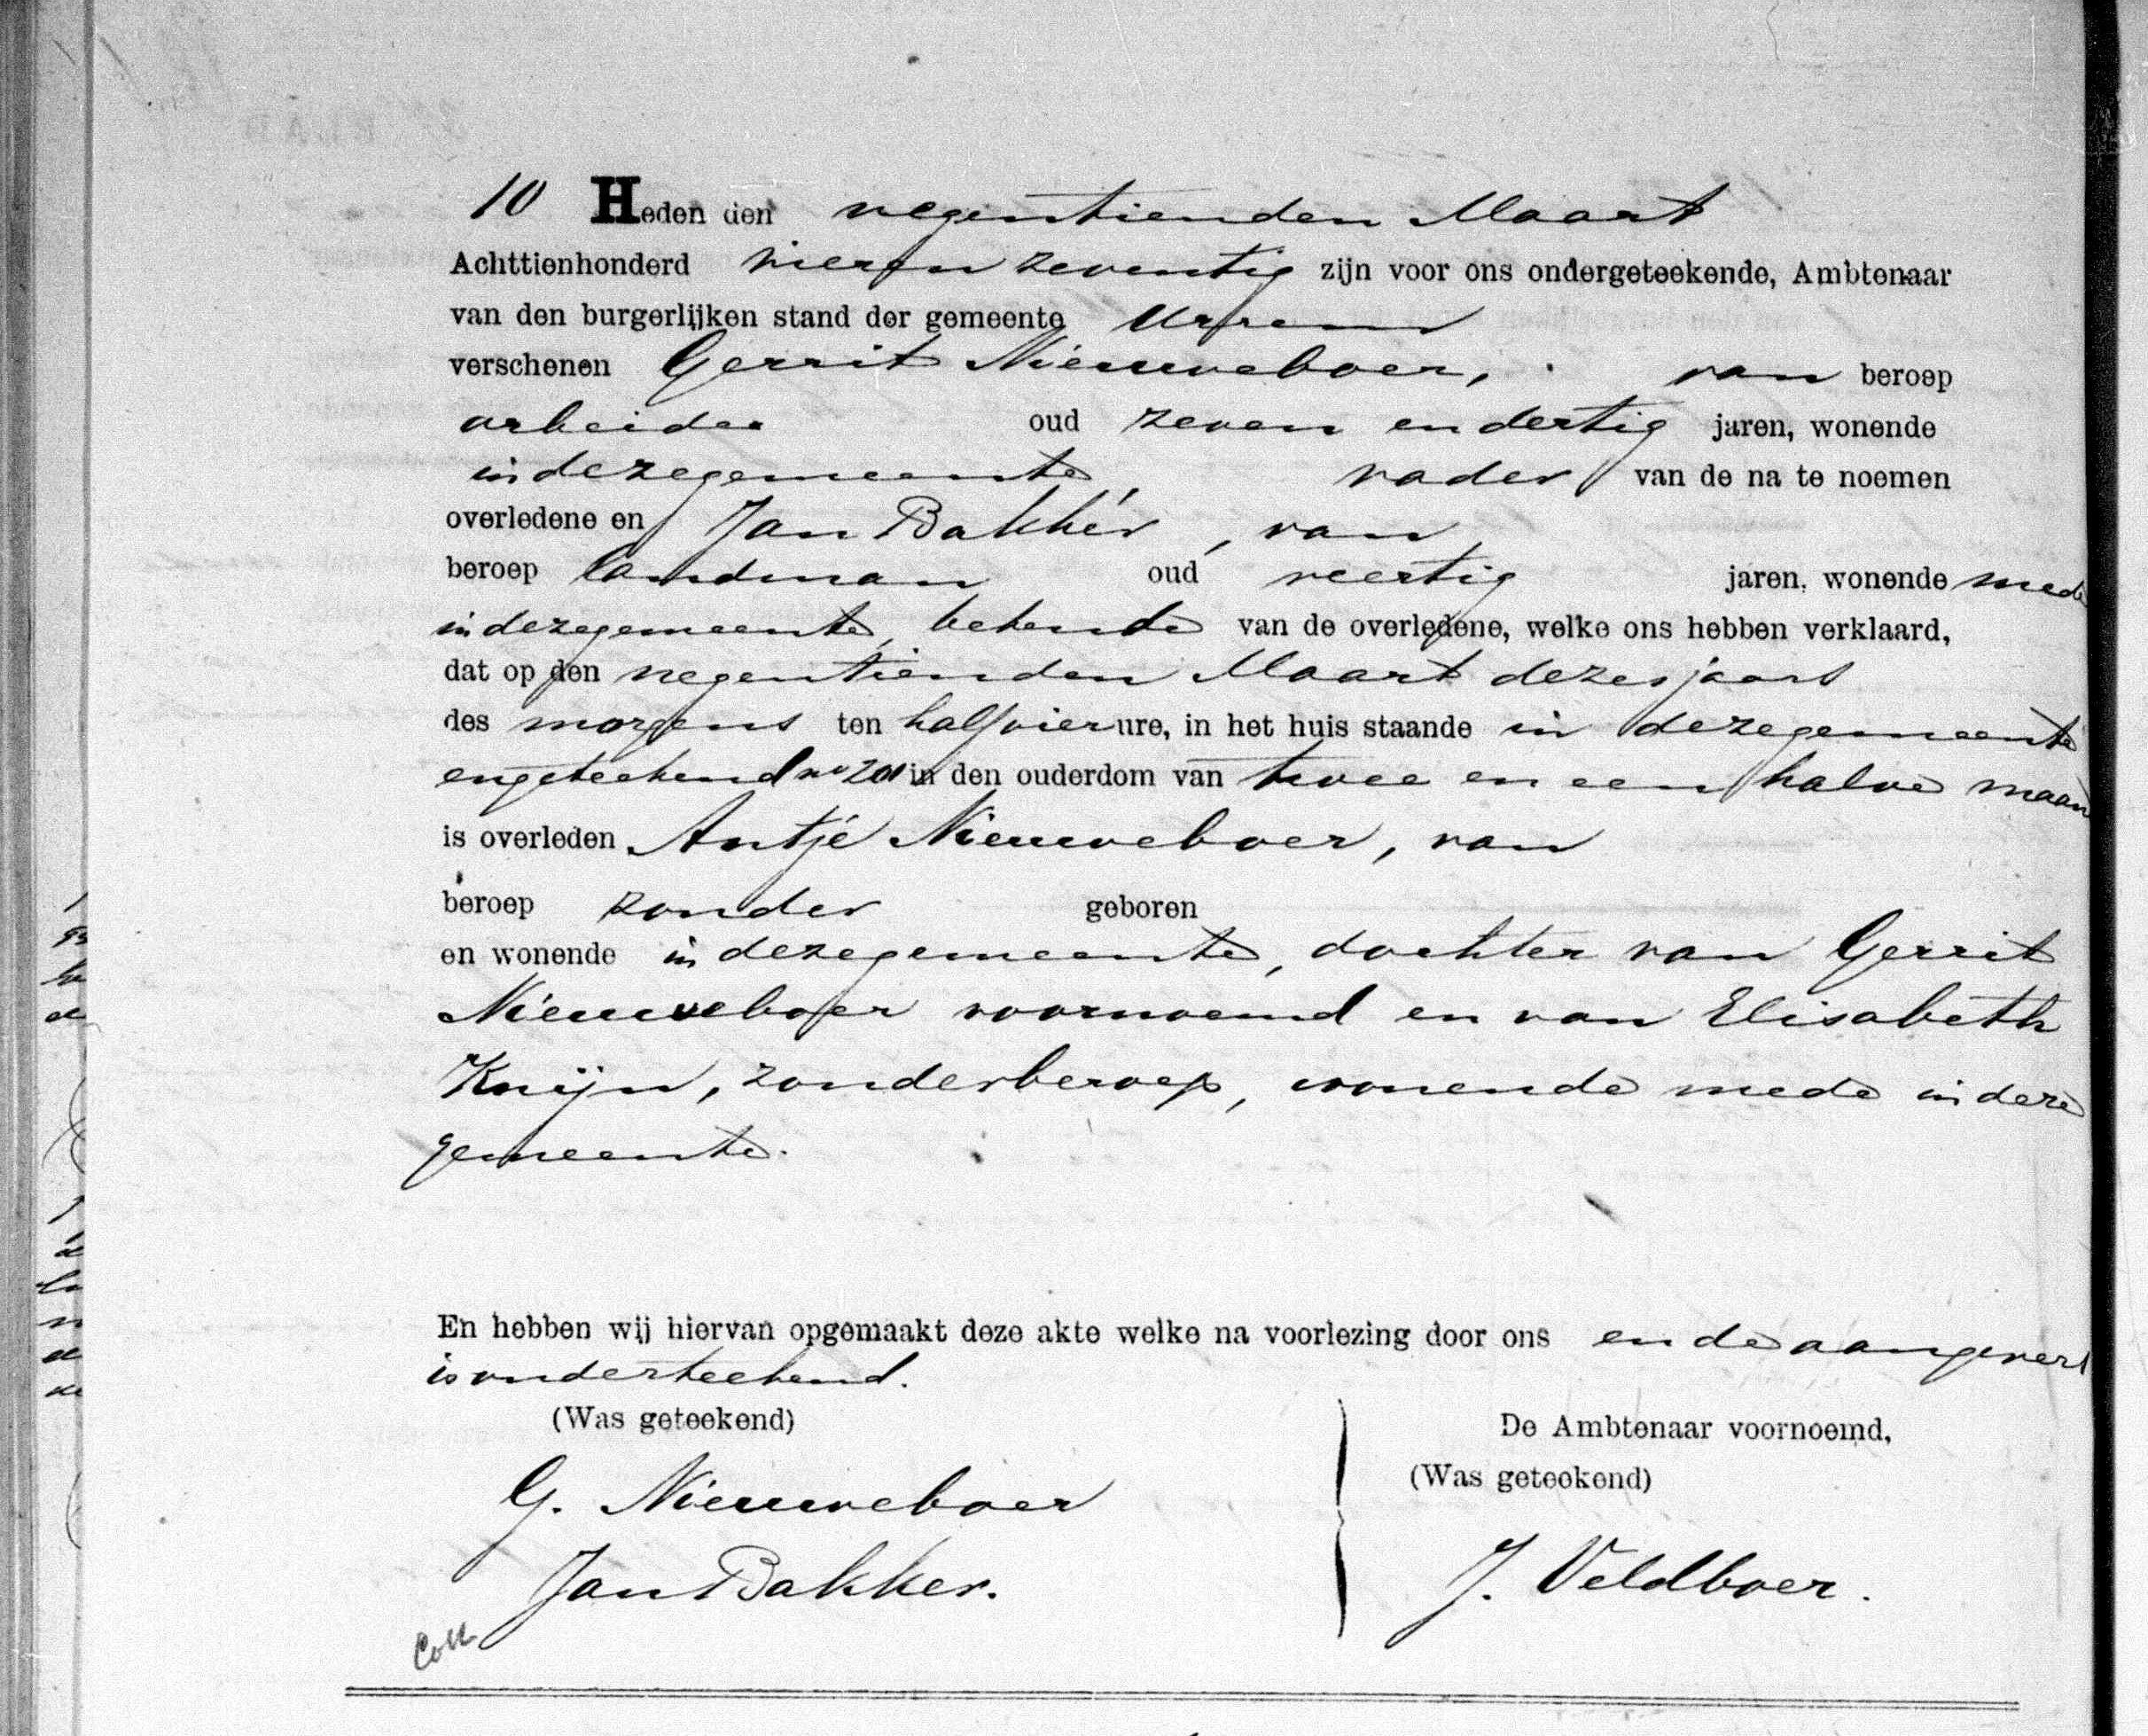 10 Heden den negentienden Maart
Achttienhonderd vierenzeventig zijn voor ons ondergeteekende, Ambtenaar
van den burgerlijken stand der gemeente Ursem
verschenen Gerrit Nieuweboer, van beroep
arbeider oud zeven en dertig jaren, wonende
in dezegemeente, vader van de na te noemen
overledene en Jan Bakker, van
beroep landman oud veertig jaren, wonende mede
in dezegemeente, bekende van de overledene, welke ons hebben verklaard,
dat op den negentienden Maart dezes jaars
des morgens ten halfvier ure, in het huis staande in dezegemeente
engeteekend no 20 in den ouderdom van twee en een halve maan
is overleden Antje Nieuweboer, van
beroep zonder geboren
en wonende in dezegemeente, dochter van Gerrit
Nieuweboer voornoemd en van Elisabeth
Knijn, zonder beroep, wonende mede in deze
gemeente.
En hebben wij hiervan opgemaakt deze akte welke na voorlezing door ons en de aangevers
is onderteekend.
(Was geteekend) De Ambtenaar voornoemd,
(Was geteekend)
G. Nieuweboer
Jan Bakker. J. Veldboer.
Coll.